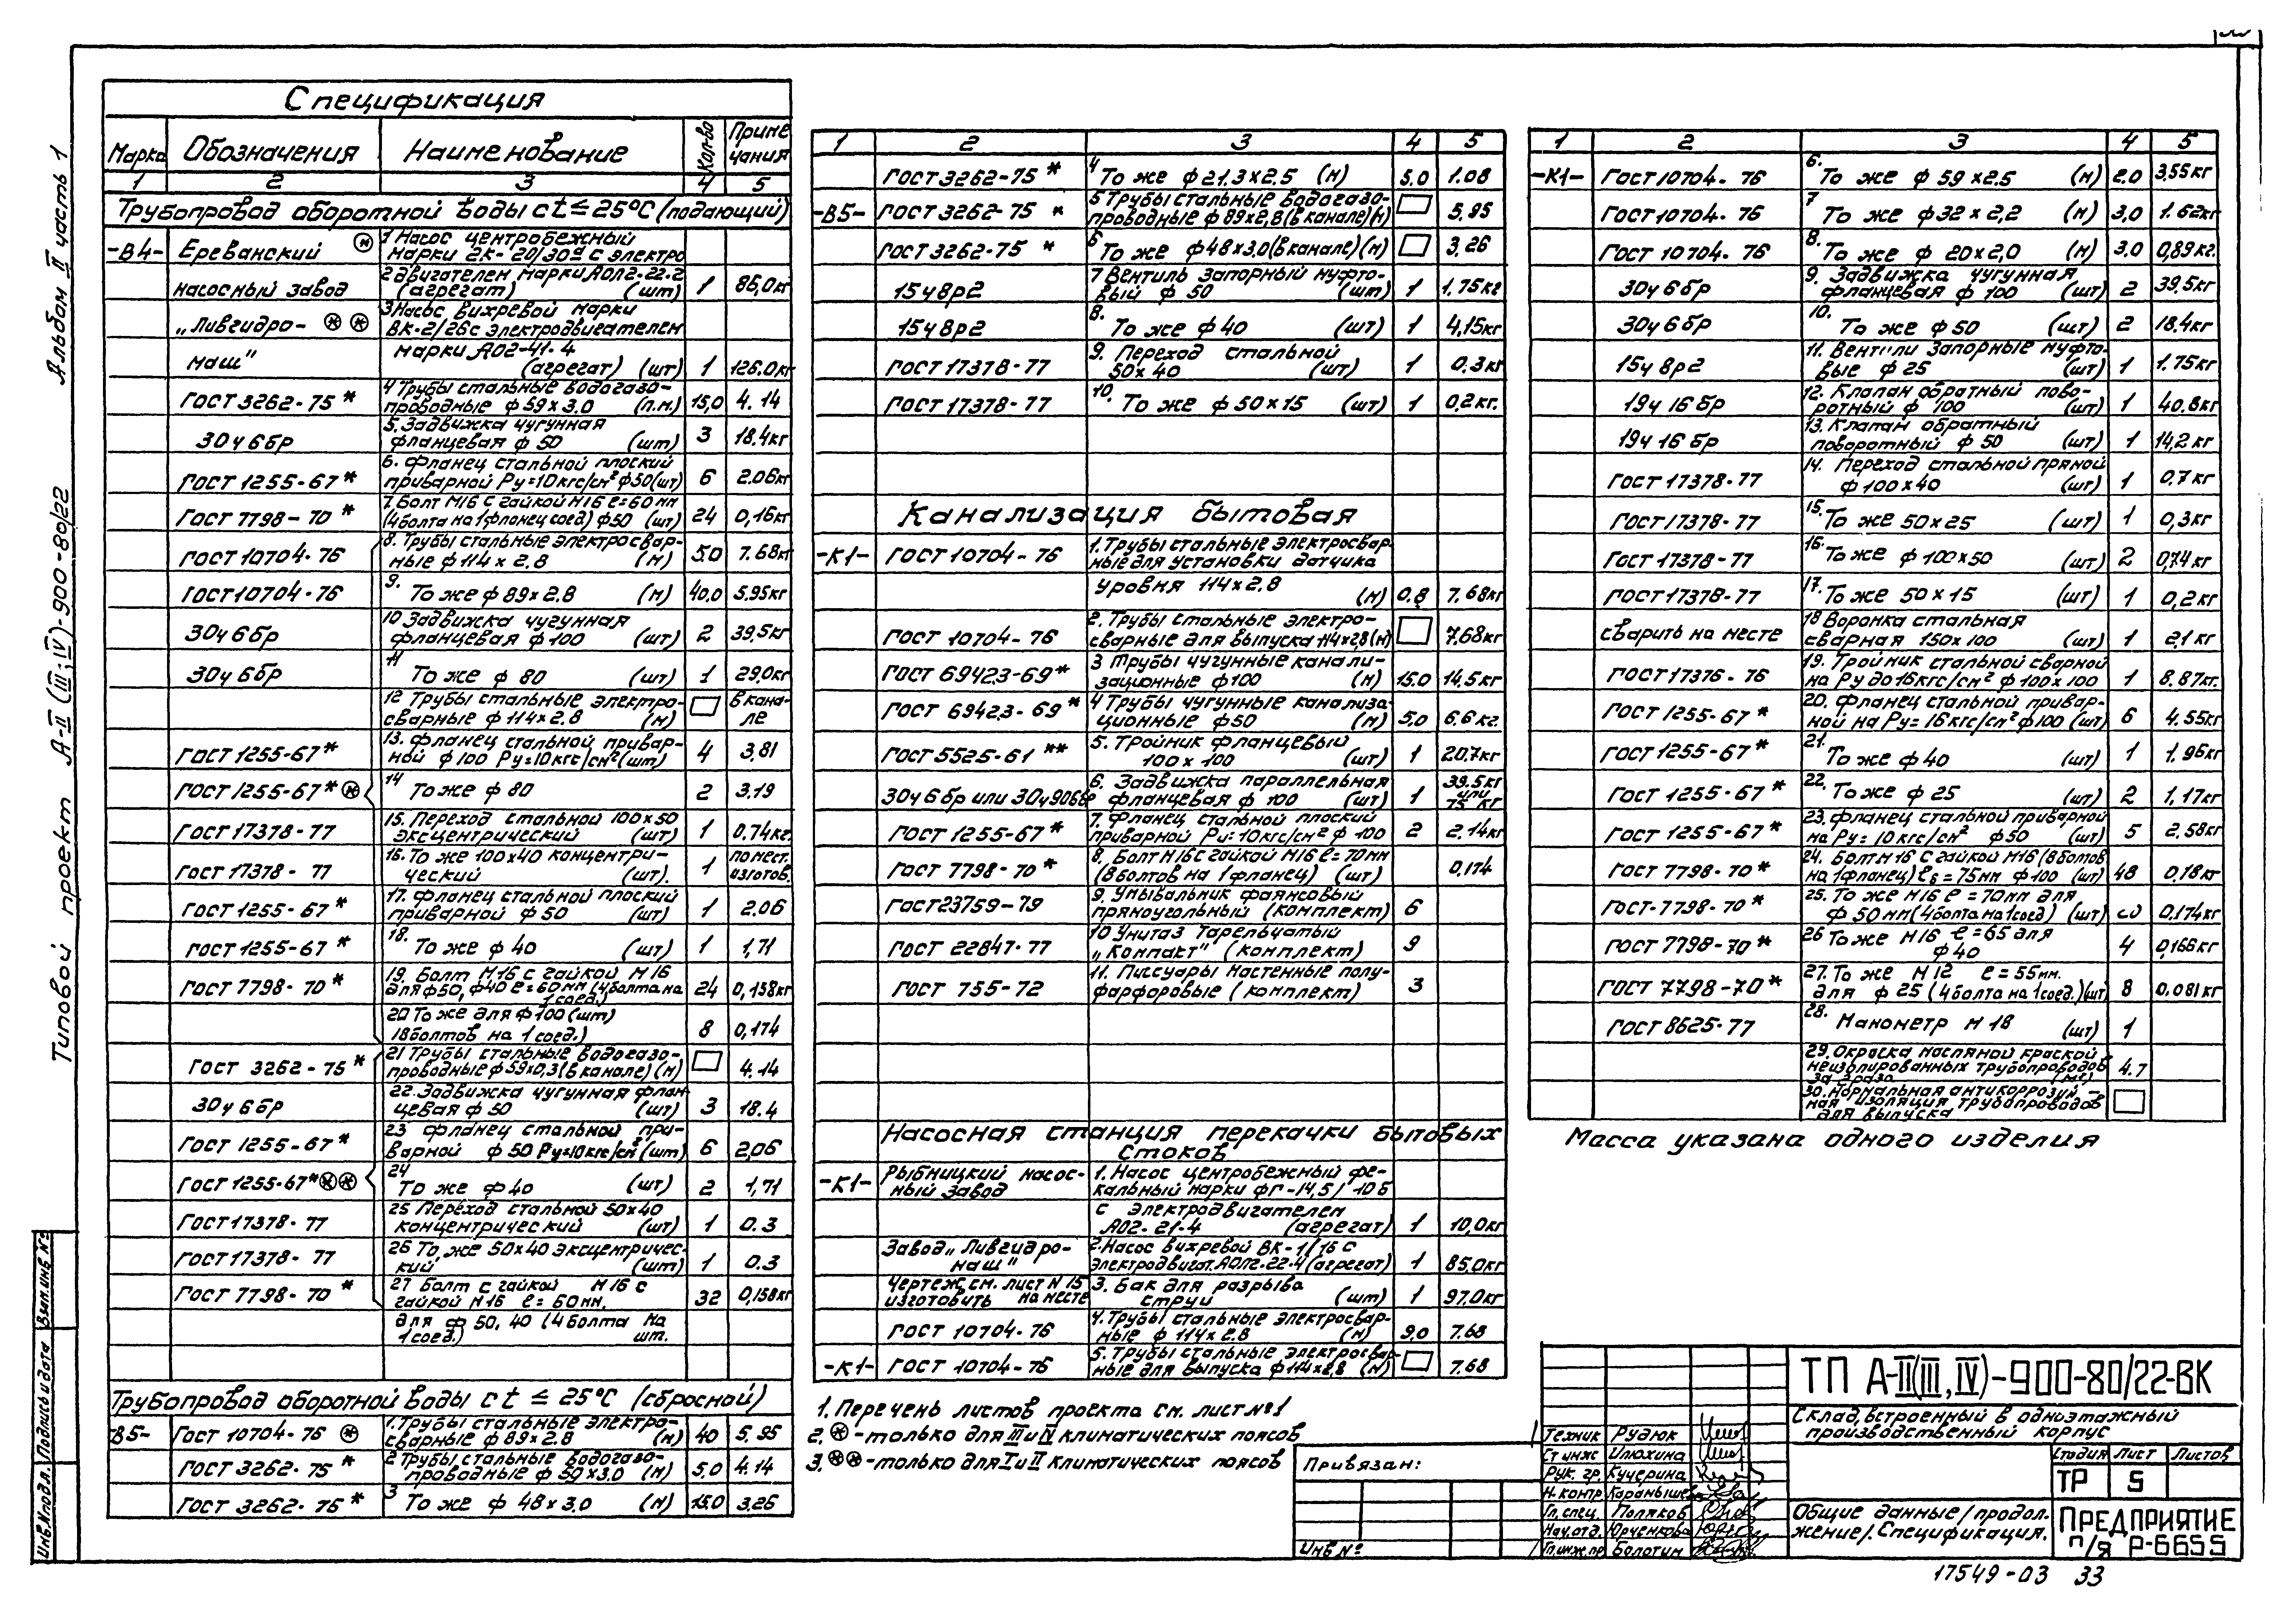 Альбом II часть 1
Типовой проект А-II (III; IV)-900-80/22
Спецификация
Марка Обозначения Наименование Кол-во Примечания
1 2 3 4 5
Трубопровод оборотной воды с t ≤ 25°С (подающий)
-В4- Ереванский ⊛ 1 Насос центробежный
марки 2К-20/30а с электро
насосный завод 2 двигателем марки АОЛ2-22-2
(агрегат) (шт) 1 86,0кг
„Ливгидро- ⊛ ⊛ 3 Насос вихревой марки
ВК-2/26 с электродвигателем
маш" марки АО2-41-4
(агрегат) (шт) 1 126.0кг
ГОСТ 3262-75* 4 Трубы стальные водогазо-
проводные ф 59х3,0 (п.м.) 15,0 4.14
30ч 6бр 5. Задвижка чугунная
фланцевая ф 50 (шт) 3 18.4кг
ГОСТ 1255-67* 6. Фланец стальной плоский
приварной Ру=10кгс/см² ф50(шт) 6 2.06кг
ГОСТ 7798-70* 7. Болт М16 с гайкой М16 ℓ=60мм
(4болта на 1фланец соед) ф50 (шт) 24 0,16кг
ГОСТ 10704-76 8. Трубы стальные электросвар-
ные ф 114х2.8 (м) 5.0 7.68кг
ГОСТ 10704-76 9. То же ф 89х2.8 (м) 40,0 5.95кг
30ч 6бр 10 Задвижка чугунная
фланцевая ф 100 (шт) 2 39,5кг
30ч 6бр 11 То же ф 80 (шт) 1 29,0кг
12 Трубы стальные электро-
сварные ф 114х2.8 (м) □ в кана-
ле
ГОСТ 1255-67* 13. Фланец стальной привар-
ной ф 100 Ру=10кгс/см² (шт) 4 3,81
ГОСТ 1255-67* ⊛ 14 То же ф 80 2 3.19
ГОСТ 17378-77 15. Переход стальной 100х50
эксцентрический (шт) 1 0,74кг.
ГОСТ 17378-77 16. То же 100х40 концентри-
ческий (шт). 1 по мест.
изготов.
ГОСТ 1255-67* 17. Фланец стальной плоский
приварной ф 50 (шт) 1 2.06
ГОСТ 1255-67* 18. То же ф 40 (шт) 1 1,71
ГОСТ 7798-70* 19. Болт М16 с гайкой М16
для ф50, ф40 ℓ=60мм (4болта на
1соед.) 24 0,158кг
20 То же для ф100 (шт)
18болтов на 1 соед.) 8 0,174
ГОСТ 3262-75* 21 Трубы стальные водогазо-
проводные ф59х0,3(в канале) (м) □ 4.14
30ч 6бр 22. Задвижка чугунная флан
цевая ф 50 (шт) 3 18.4
ГОСТ 1255-67* 23 Фланец стальной при-
варной ф 50 Ру=10кгс/см² (шт) 6 2,06
ГОСТ 1255-67* ⊛⊛ 24 То же ф40 (шт) 2 1,71
ГОСТ 17378-77 25 Переход стальной 50х40
концентрический (шт) 1 0.3
ГОСТ 17378-77 26 То же 50х40 эксцентричес-
кий (шт) 1 0.3
ГОСТ 7798-70* 27 Болт с гайкой М16 с
гайкой М16 ℓ=60мм. 32 0,158кг
для ф 50, 40 (4 болта на
1соед.) шт.
Трубопровод оборотной воды с t ≤ 25°С (сбросной)
-В5- ГОСТ 10704-76 ⊛ 1. Трубы стальные электро-
сварные ф 89х2.8 (м) 40 5,95
ГОСТ 3262-75* 2 Трубы стальные водогазо-
проводные ф 59х3.0 (м) 5,0 4.14
ГОСТ 3262-76* 3 То же ф 48х3.0 (м) 15.0 3.26
1 2 3 4 5
ГОСТ 3262-75* 4 То же ф 21.3х2,5 (м) 5.0 1.08
-В5- ГОСТ 3262-75* 5 Трубы стальные водогазо-
проводные ф 89х2,8(в канале)(м) □ 5,95
ГОСТ 3262-75* 6 То же ф48х3.0(в канале)(м) □ 3,26
15ч8р2 7 Вентиль запорный муфто-
вый ф 50 (шт) 1 1.75кг
15ч8р2 8. То же ф 40 (шт) 1 4,15кг
ГОСТ 17378-77 9. Переход стальной
50х40 (шт) 1 0,3кг
ГОСТ 17378-77 10. То же ф 50х15 (шт) 1 0,2кг.
Канализация бытовая
-К1- ГОСТ 10704-76 1. Трубы стальные электросвар
ные для установки датчика
уровня 114х2.8 (м) 0.8 7.68кг
ГОСТ 10704-76 2. Трубы стальные электро-
сварные для выпуска 114х2,8(м) □ 7,68кг
ГОСТ 6942.3-69* 3 Трубы чугунные канали-
зационные ф100 (м) 15.0 14,5кг
ГОСТ 6942.3-69* 4 Трубы чугунные канализа
ционные ф50 (м) 5,0 6.6кг.
ГОСТ 5525-61** 5. Тройник фланцевый
100х100 (шт) 1 20.7кг
30ч6бр или 30ч906бр 6. Задвижка параллельная
фланцевая ф 100 (шт) 1 39.5кг
или
75 кг
ГОСТ 1255-67* 7. Фланец стальной плоский
приварной Ру=10кгс/см² ф 100 2 2.14кг
ГОСТ 7798-70* 8. Болт М16 с гайкой М16 ℓ=70мм
(8болтов на 1фланец) (шт) 0,174
ГОСТ 23759-79 9 Умывальник фаянсовый
прямоугольный (комплект) 6
ГОСТ 22847-77 10 Унитаз тарельчатый
„Компакт" (комплект) 9
ГОСТ 755-72 11. Писсуары настенные полу-
фарфоровые (комплект) 3
Насосная станция перекачки бытовых
стоков
-К1- Рыбницкий насос-
ный завод 1. Насос центробежный фе-
кальный марки ФГ-14,5/10б
с электродвигателем
АО2-21-4 (агрегат) 1 10,0кг
Завод „Ливгидро-
маш" 2. Насос вихревой ВК-1/16 с
электродвигат. АОЛ2-22-4 (агрегат) 1 85.0кг
Чертеж см. лист N 15
изготовить на месте 3. Бак для разрыва
струи (шт) 1 97.0кг
ГОСТ 10704-76 4. Трубы стальные электросвар-
ные ф 114х2.8 (м) 9,0 7.68
-К1- ГОСТ 10704-76 5. Трубы стальные электросвар-
ные для выпуска ф114х2,8 (м) □ 7,68
1. Перечень листов проекта см. лист №1
2. ⊛ -только для III и IV климатических поясов
3. ⊛⊛ -только для I и II климатических поясов
1 2 3 4 5
-К1- ГОСТ 10704-76 6. То же ф 59х2.5 (м) 2.0 3,55кг
ГОСТ 10704-76 7 То же ф32х2,2 (м) 3,0 1.62кг
ГОСТ 10704-76 8. То же ф 20х2,0 (м) 3.0 0,89кг.
30ч 6бр 9. Задвижка чугунная
фланцевая ф 100 (шт) 2 39.5кг
30ч 6бр 10. То же ф 50 (шт) 2 18.4кг
15ч 8р2 11. Вентили запорные муфто-
вые ф 25 (шт) 1 1.75кг
19ч 16бр 12. Клапан обратный пово-
ротный ф 100 (шт) 1 40.8кг
19ч 16бр 13. Клапан обратный
поворотный ф 50 (шт) 1 14,2кг
ГОСТ 17378-77 14. Переход стальной прямой
ф 100х40 (шт) 1 0,7кг
ГОСТ 17378-77 15. То же 50х25 (шт) 1 0,3кг
ГОСТ 17378-77 16. То же ф 100х50 (шт) 2 0,74кг
ГОСТ 17378-77 17. То же 50х15 (шт) 1 0,2кг
сварить на месте 18 Воронка стальная
сварная 150х100 (шт) 1 2,1кг
ГОСТ 17376-76 19. Тройник стальной сварной
на Ру до 16кгс/см² ф 100х100 1 8.87кг.
ГОСТ 1255-67* 20. Фланец стальной привар-
ной на Ру=16кгс/см² ф100 (шт) 6 4.55кг
ГОСТ 1255-67* 21. То же ф40 (шт) 1 1,96кг
ГОСТ 1255-67* 22. То же ф 25 (шт) 2 1,17кг
ГОСТ 1255-67* 23. Фланец стальной приварной
на Ру=10кгс/см² ф50 (шт) 5 2.58кг
ГОСТ 7798-70* 24. Болт М16 с гайкой М16 (8болтов
на 1фланец) ℓб=75мм ф 100 (шт) 48 0,18кг
ГОСТ-7798-70* 25. То же М16 ℓ=70мм для
ф 50мм(4болта на 1соед) (шт) 0,174кг
ГОСТ 7798-70* 26 То же М16 ℓ=65 для
ф40 4 0,166кг
ГОСТ 7798-70* 27. То же М12 ℓ=55мм.
для ф 25 (4болта на 1соед.)(шт) 8 0,081кг
ГОСТ 8625-77 28. Манометр М 18 (шт) 1
29. Окраска масляной краской
неизолированных трубопроводов
за 2 раза (м²) 4.7
30. Нормальная антикоррозий-
ная изоляция трубопроводов
для выпуска □
Масса указана одного изделия
Привязан:
Инв №
ТП А-II(III,IV)-900-80/22-ВК
Склад, встроенный в одноэтажный
производственный корпус
Техник Рудюк
Ст инж Илюхина
Рук. гр. Кучерина
Н. контр Карамышев
Гл. спец. Поляков
Нач. отд. Юрченкова
Гл. инж. пр Болотин
Стадия Лист Листов
ТР 5
Общие данные/продол-
жение/. Спецификация.
ПРЕДПРИЯТИЕ
п/я Р-6655
17549-03 33
Инв.№подл. Подпись и дата Взам.инв №